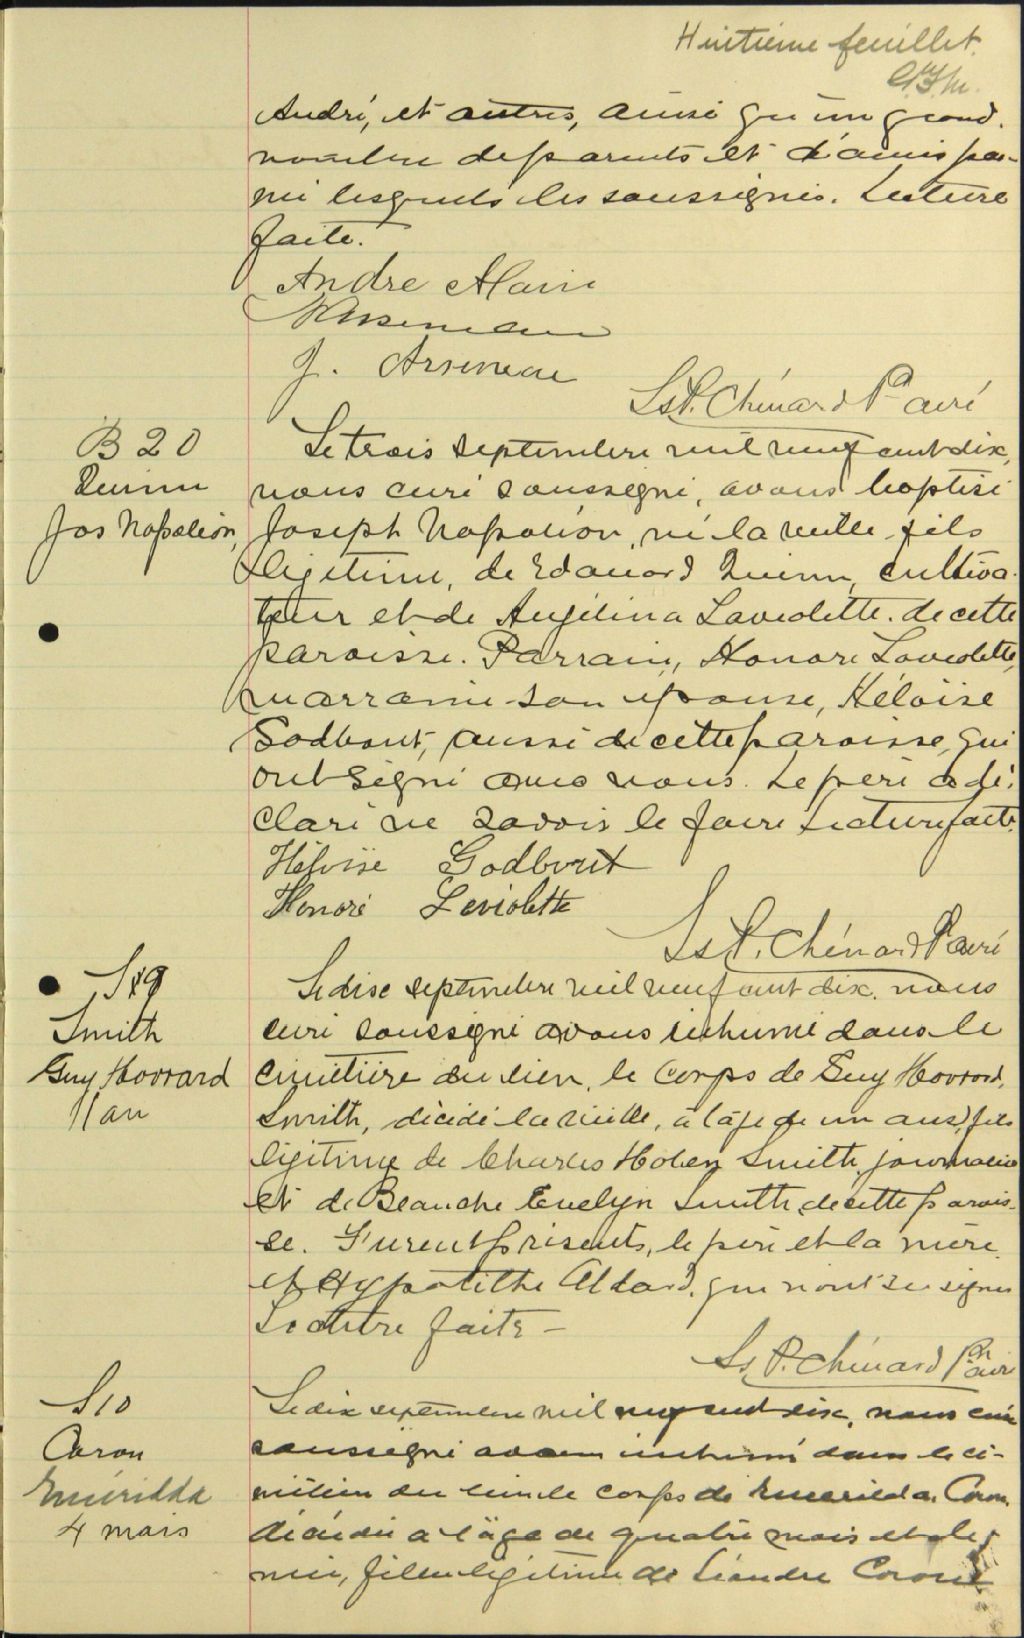 Huitième feuillet.
André, et autres, ainsi qu'un grand
nombre de parents et d'amis par-
mi lesquels les soussignés. Lecture
faite.
Andre Alain
J. Arseneau
Ls P. Chénard Ptre curé
B 20
Quinn
Jos Napoléon,
Le trois septembre mil neuf cent dix,
nous curé soussigné, avons baptisé
Joseph Napoléon, né la veille, fils
légitime, de Edouard Quinn, cultiva-
teur et de Angélina Laviolette, de cette
paroisse. Parrain, Honoré Laviolette,
marraine son épouse, Héloïse
Godbout, aussi de cette paroisse, qui
ont signé avec nous. Le père a dé-
claré ne savoir le faire Lecture faite.
Héloïse Godbout
Honoré Laviolette
Ls P. Chénard Ptre curé
S 9
Smith
Guy Howard
1 an
Le dix septembre mil neuf cent dix, nous
curé soussigné avons inhumé dans le
cimetière du lieu, le corps de Guy Howard,
Smith, décédé la veille, à l'âge de un ans, fils
légitime de Charles Holen Smith, journalier
et de Blanche Evelyn Smith, de cette parois-
se. Furent présents, le père et la mère
et Hypolithe Allard, qui n'ont su signer
Lecture faite -
Ls P. Chénard Ptre curé
S 10
Caron
Emérilda
4 mois
Le dix septembre mil neuf cent dix, nous curé
soussigné avons inhumé dans le ci-
metière du lieu le corps de Emerilda Caron,
décédée a l'âge de quatre mois et de-
mie, fille légitime de Léandre Caron